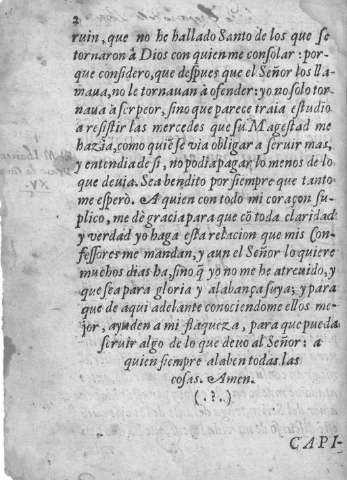 2
ruin, que no he hallado Santo de los que se
tornaron à Dios con quien me consolar: por-
que considero, que despues que el Señor los lla-
maua, no le tornauan à ofender: yo no solo tor-
naua à ser peor, sino que parece traia estudio
a resistir las mercedes que su Magestad me
hazia, como quiẽ se via obligar a seruir mas,
y entendia de si, no podia pagar lo menos de lo
que deuia. Sea bendito por siempre que tanto
me esperò. A quien con todo mi coraçon su-
plico, me dè gracia para que cõ toda claridad
y verdad yo haga esta relacion que mis Con-
fessores me mandan, y aun el Señor lo quiere
muchos dias ha, sino q̃ yo no me he atreuido, y
que sea para gloria y alabança suya; y para
que de aqui adelante conociendome ellos me-
jor, ayuden a mi flaqueza, para que pueda
seruir algo de lo que deuo al Señor: a
quien siempre alaben todas las
cosas. Amen.
(.?.)
CAPI-